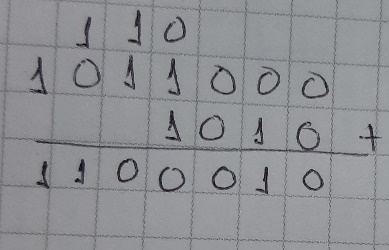 1 1 0
1 0 1 1 0 0 0
1 0 1 0 +
1 1 0 0 0 1 0